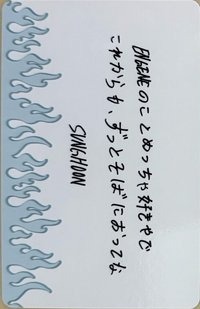 ENGENEのことめっちゃ好きやで
これからも、ずっとそばにおってな
SUNGHOON